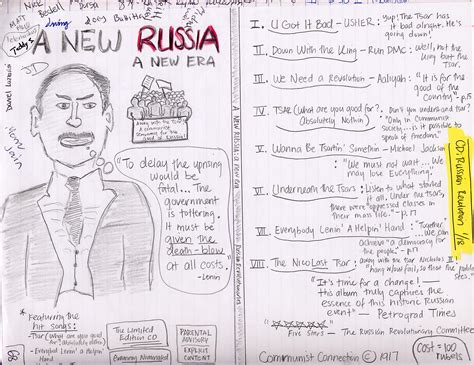 Nick
Bedell
Bursa
Joey
A NEW RUSSIA
A NEW ERA
Daniel
"To delay the uprising
would be
fatal... The
government
is tottering.
It must be
given the
death-blow
at all costs."
-Lenin
*Featuring the
hit songs:
-Tsar (What are you good for?
(Absolutely Nothin)
-Everybody Lenin' A Helpin'
Hand
The Limited
Edition CD
PARENTAL
ADVISORY
EXPLICIT
CONTENT
A NEW RUSSIA A NEW ERA
I. U Got It Bad - USHER: Yup! The Tsar has
it bad alright. He's
going down!
II. Down With the King - Run DMC: Well, not the
king but
the Tsar.
III. We Need a Revolution - Aaliyah: "It is for the
good of
the Country" -p.15
IV. TSAR (What are you good for?) Don't you understand tsar?
Absolutely Nothin' "Only in Communist
society... is it possible to
speak of freedom"
V. Wanna Be Tsartin' Somethin - Michael Jackson:
"We must not wait... We
may lose Everything."
VI. Underneath the Tsars: Listen to what started
it all. Under the tsars,
there were "oppressed classes in
their mass life." -p.17
VII. Everybody Lenin' A Helpin' Hand: "Together" we
can
achieve "a democracy for
the people." -p.17
VIII. The Nico Last Tsar: away with the tsar Nicholas II
"It's time for a change! —
this album truly captures the
essence of this historic Russian
event" — Petrograd Times
Five Stars - The Russian Revolutionary Committee
Communist Connection © 1917
Cost = 100
rubels
CD: Russian Revolution 1/18